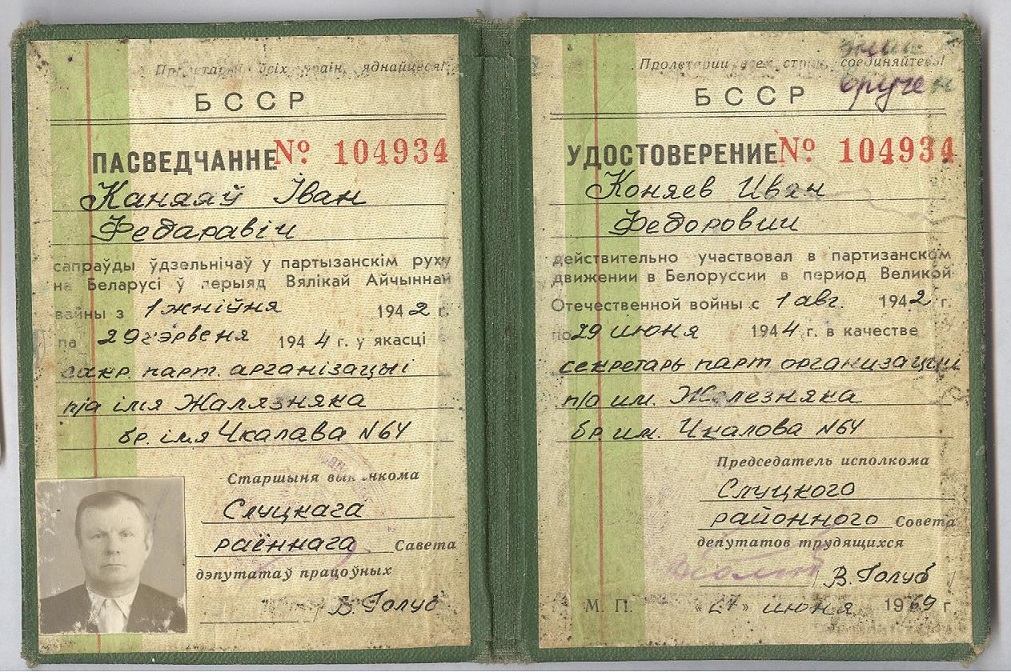 Пралетарыі ўсіх краін, яднайцеся!
БССР
ПАСВЕДЧАННЕ № 104934
Каняеў Іван
Федаравіч
сапраўды ўдзельнічаў у партызанскім руху
на Беларусі ў перыяд Вялікай Айчыннай
вайны з 1 жніўня 1942 г.
па 29 чэрвеня 1944 г. у якасці
сакр. парт. арганізацыі
п/а імя Жалязняка
бр. імя Чкалава N64
Старшыня выканкома
Слуцкага
раённага Савета
дэпутатаў працоўных
В. Голуб
Пролетарии всех стран, соединяйтесь!
вручен
БССР
УДОСТОВЕРЕНИЕ № 104934
Коняев Иван
Федорович
действительно участвовал в партизанском
движении в Белоруссии в период Великой
Отечественной войны с 1 авг. 1942 г.
по 29 июня 1944 г. в качестве
секретарь парт организации
п/о им. Железняка
бр им. Чкалова N64
Председатель исполкома
Слуцкого
районного Совета
депутатов трудящихся
В. Голуб
М. П. «27» июня 19 9 г